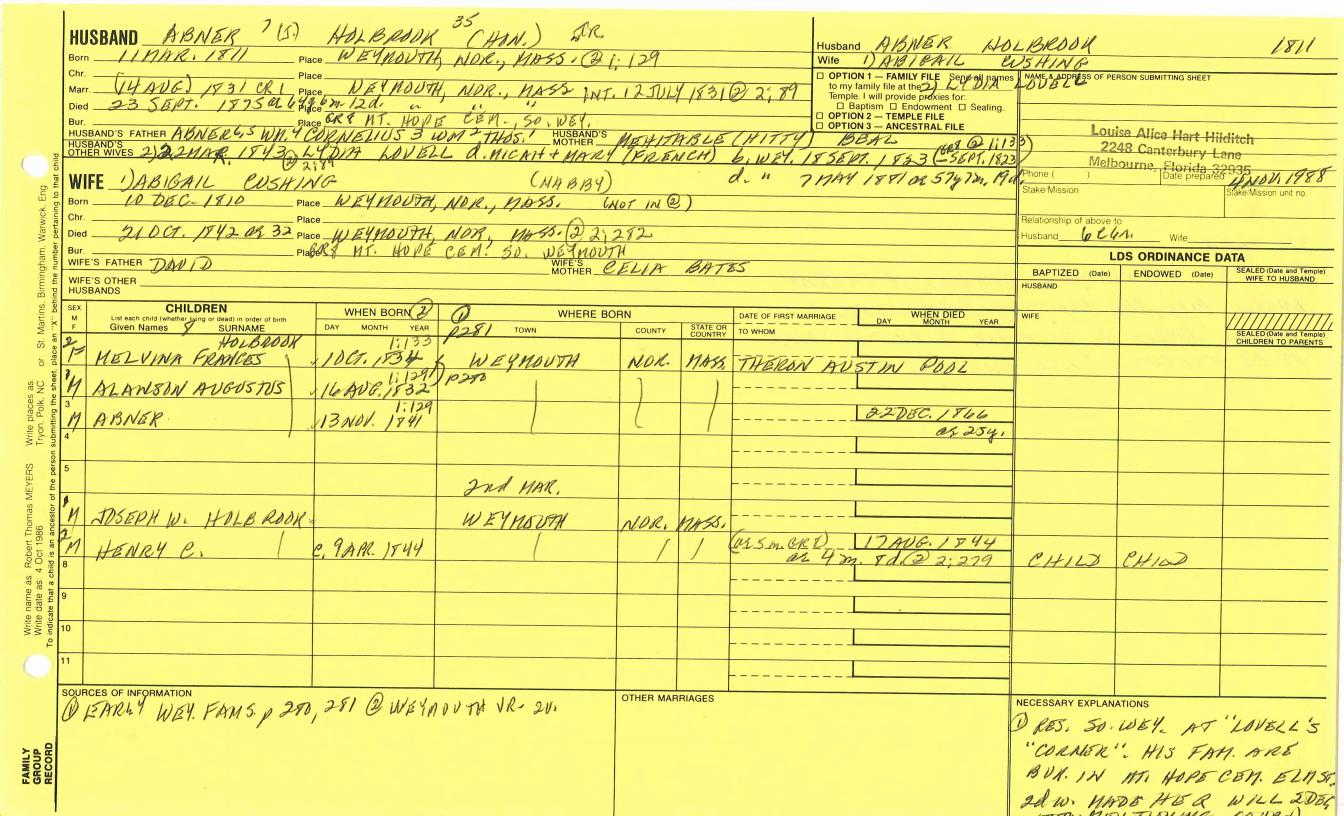 HUSBAND ABNER 7 (5.) HOLBROOK 35 (HON.) JR.
Born 11 MAR. 1811 Place WEYMOUTH, NOR., MASS. ② 1; 129
Chr. Place
Marr. (14 AUG) 1831 CR 1 Place WEYMOUTH, NOR., MASS INT. 12 JULY 1831 ② 2; 89
Died 23 SEPT. 1875 Place " " "
Bur. Place MT. HOPE CEM., SO. WEY.
HUSBAND'S FATHER ABNER 6, 5 WM. 4 CORNELIUS 3 WM 2 THOS. 1 HUSBAND'S MOTHER MEHITABLE (HITTY) BEAL
HUSBAND'S OTHER WIVES 2) 22 MAR. 1843 LYDIA LOVELL d. MICAH + MARY (FRENCH) b. WEY. 18 SEPT. 1823 (SEPT. 1823) ② 1; 133
② 2; 89
d. " 7 MAY 1881 ae 57y 7m. 19d.
WIFE 1) ABIGAIL CUSHING (NABBY)
Born 10 DEC. 1810 Place WEYMOUTH, NOR., MASS. (NOT IN ②)
Chr. Place
Died 21 OCT. 1842 ae 32 Place WEYMOUTH, NOR., MASS. ② 2; 282
Bur Place MT. HOPE CEM. SO. WEYMOUTH
WIFE'S FATHER DAVID WIFE'S MOTHER CELIA BATES
WIFE'S OTHER HUSBANDS
Husband ABNER HOLBROOK 1811
Wife 1) ABIGAIL CUSHING
2) LYDIA LOVELL
☐ OPTION 1 — FAMILY FILE Send all names
to my family file at the
Temple. I will provide proxies for:
☐ Baptism ☐ Endowment ☐ Sealing.
☐ OPTION 2 — TEMPLE FILE
☐ OPTION 3 — ANCESTRAL FILE
NAME & ADDRESS OF PERSON SUBMITTING SHEET
Louise Alice Hart Hilditch
2248 Canterbury Lane
Melbourne, Florida 32935
Phone ( ) Date prepared 4 NOV. 1988
Stake/Mission Stake/Mission unit no.
Relationship of above to:
Husband Wife
LDS ORDINANCE DATA
BAPTIZED (Date) ENDOWED (Date) SEALED (Date and Temple) WIFE TO HUSBAND
HUSBAND
WIFE
SEALED (Date and Temple) CHILDREN TO PARENTS
SEX M F CHILDREN WHEN BORN ② ① WHERE BORN DATE OF FIRST MARRIAGE WHEN DIED
List each child (whether living or dead) in order of birth
Given Names 8 SURNAME DAY MONTH YEAR p281 TOWN COUNTY STATE OR COUNTRY TO WHOM DAY MONTH YEAR
HOLBROOK 1; 133
2 F MELVINA FRANCES 1 OCT. 1834 WEYMOUTH NOR. MASS THERON AUSTIN POOL
1; 129 p280
1 M ALANSON AUGUSTUS 16 AUG. 1832
1; 129
3 M ABNER 13 NOV. 1841 22 DEC. 1866
4 ae 25y.
5
2nd MAR.
1 M JOSEPH W. HOLBROOK WEYMOUTH NOR. MASS.
2 M HENRY C. c. 9 APR. 1844 (ae 5 m. GR8) 17 AUG. 1844
8 ae 4 m. 8d. ② 2; 279 CHILD CHILD
9
10
11
SOURCES OF INFORMATION
① EARLY WEY. FAMS. p 280, 281 ② WEYMOUTH VR. 2v.
OTHER MARRIAGES
NECESSARY EXPLANATIONS
① RES. SO. WEY. AT "LOVELL'S
"CORNER". HIS FAM. ARE
BUR. IN MT. HOPE CEM. ELM ST.
2d w. MADE HER WILL 2 DEC.
Write name as: Robert Thomas MEYERS Write places as: Tryon, Polk, NC or St. Martins, Birmingham, Warwick, Eng.
Write date as: 4 Oct 1986
To indicate that a child is an ancestor of the person submitting the sheet, place an "X" behind the number pertaining to that child
FAMILY GROUP RECORD